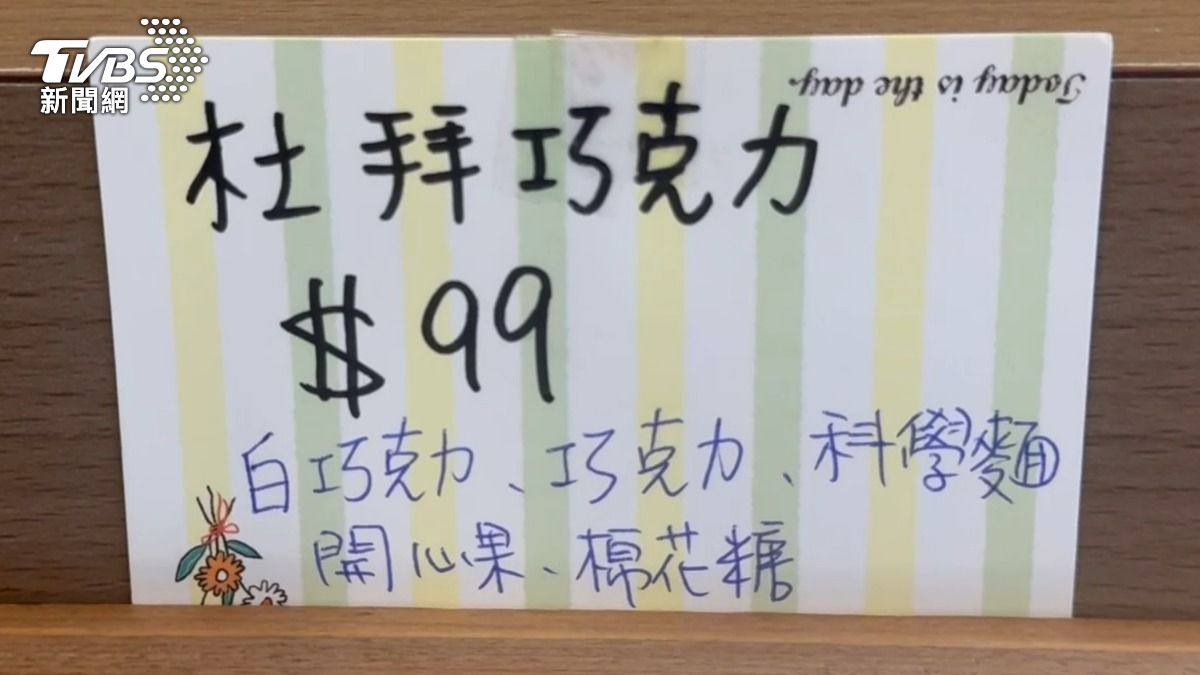 TVBS
新聞網
Today is the day.
杜拜巧克力
$99
白巧克力、巧克力、科學麵
開心果、棉花糖